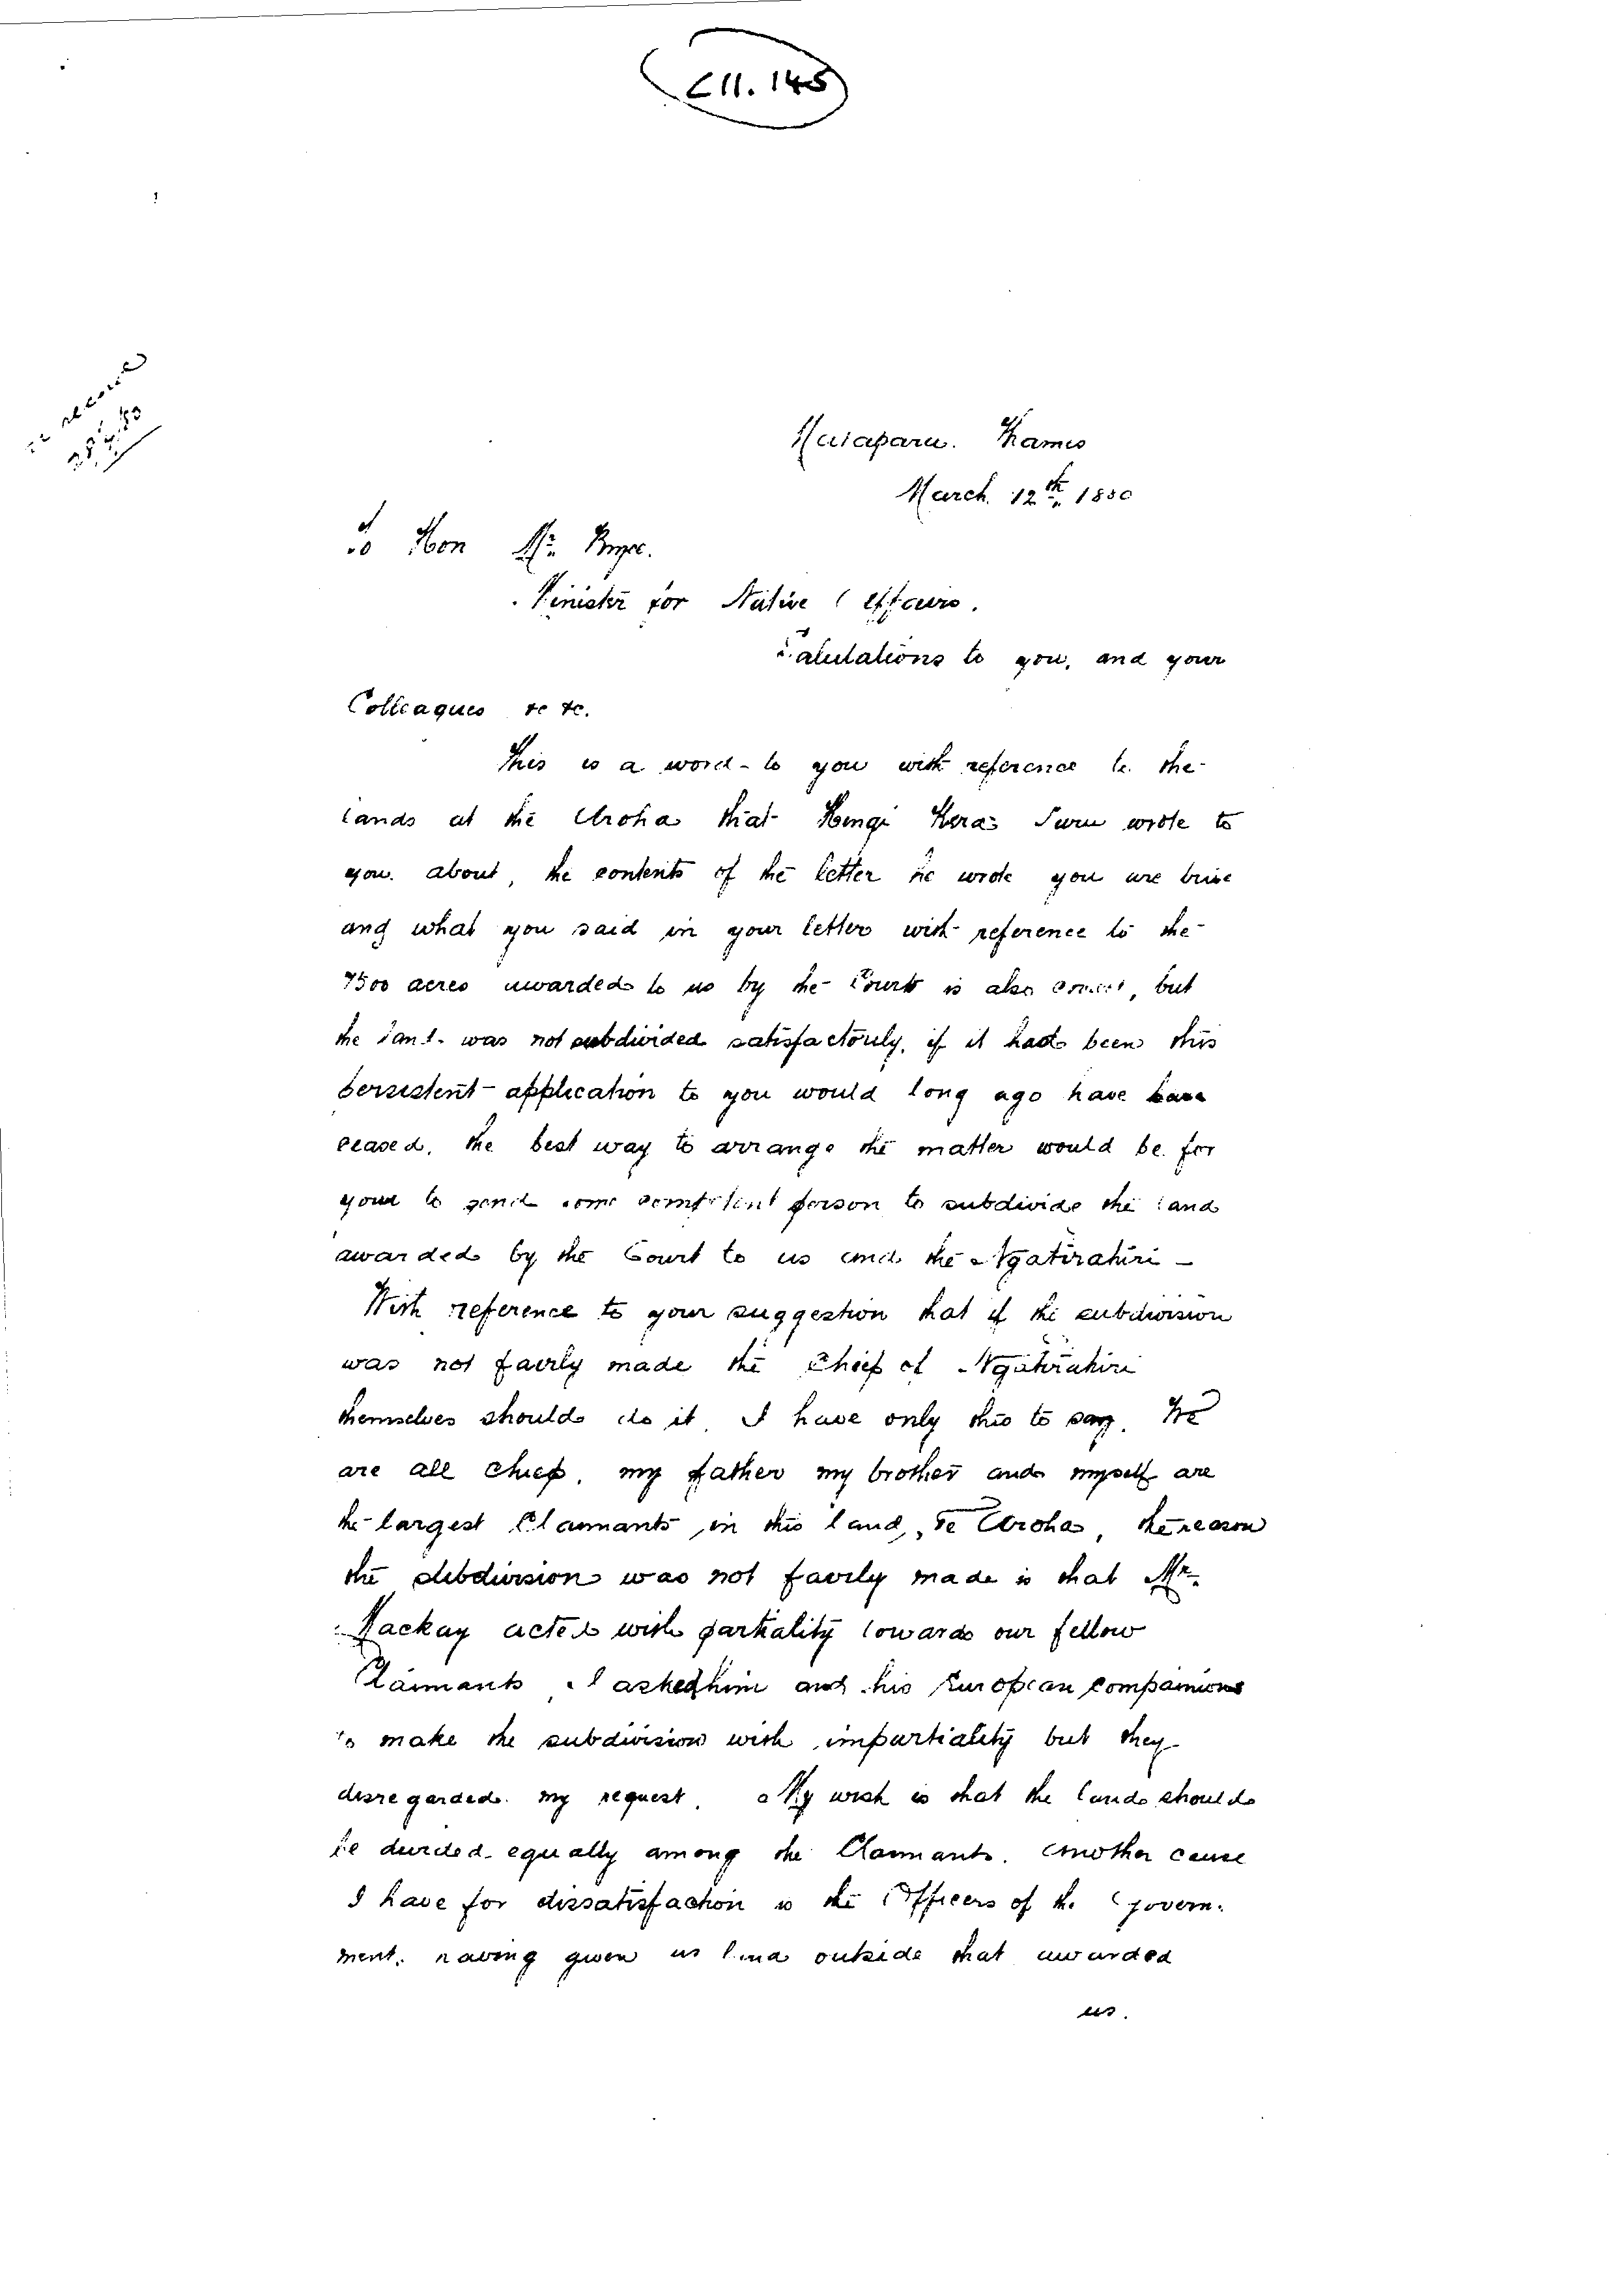 C11. 145
Thames
March. 12th, 1880
To Hon Mr. Bryce.
Minister for Native Affairs.
Salutations to you, and your
Colleagues &c &c.
This is a word to you with reference to the
lands at the Aroha that Hengi wrote to
you about, the contents of the letter he wrote you are true
and what you said in your letter with reference to the
7500 acres awarded to us by the Court is also correct, but
the land was not subdivided satisfactorily, if it had been this
persistent application to you would long ago have have
ceased, the best way to arrange the matter would be for
your to send some competent person to subdivide the land
awarded by the Court to us and the Ngatirahiri -
With reference to your suggestion that if the subdivision
was not fairly made the Chiefs of Ngatirahiri
themselves should do it, I have only this to say. We
are all chiefs, my father my brother and myself are
the largest Claimants, in this land, Te Aroha, the reason
the subdivision was not fairly made is that Mr.
Mackay acted with partiality towards our fellow
Claimants, I asked him and his European companions
to make the subdivision with impartiality but they
disregarded my request. My wish is that the lands should
be divided equally among the Claimants. Another cause
I have for dissatisfaction is the Officers of the Govern-
ment, having given us land outside that awarded
us.